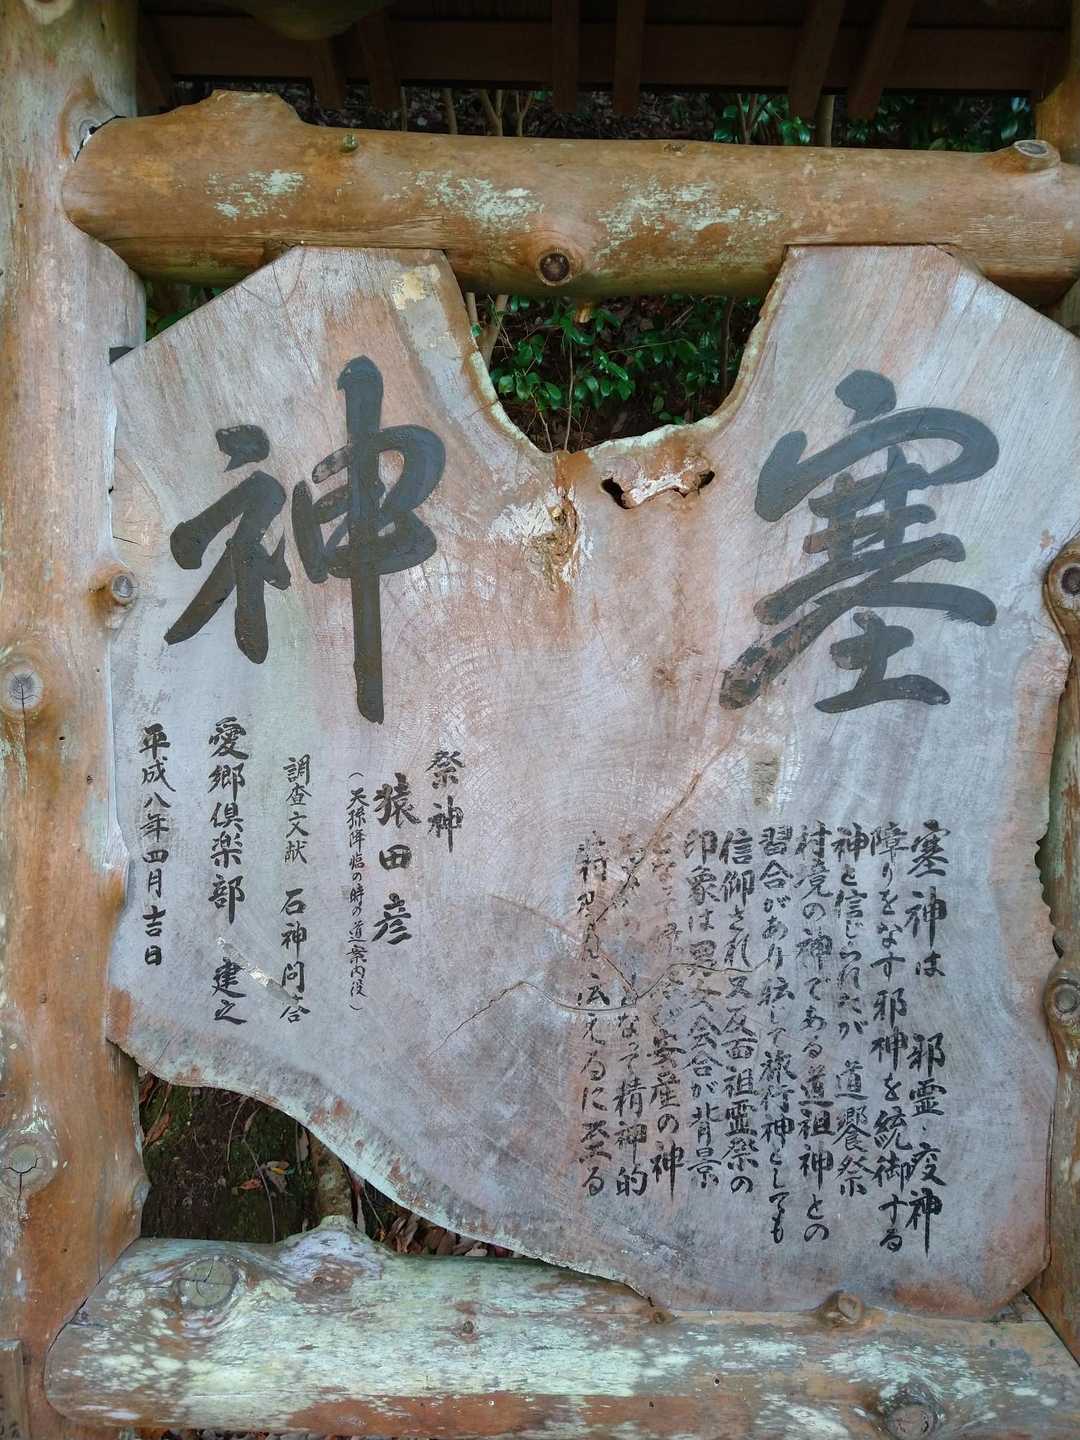 塞神
塞神は 邪霊・疫神
障りをなす邪神を統御する
神と信じられたが 道饗祭
村境の神である道祖神との
習合があり転じて旅行神としても
信仰され又反面祖霊祭の
印象は男女会合が背景
となって 安産の神
となって精神的
伝えるに至る
祭神
猿田彦
(天孫降臨の時の道案内役)
調査文献 石神問答
愛郷倶楽部 建之
平成八年四月吉日